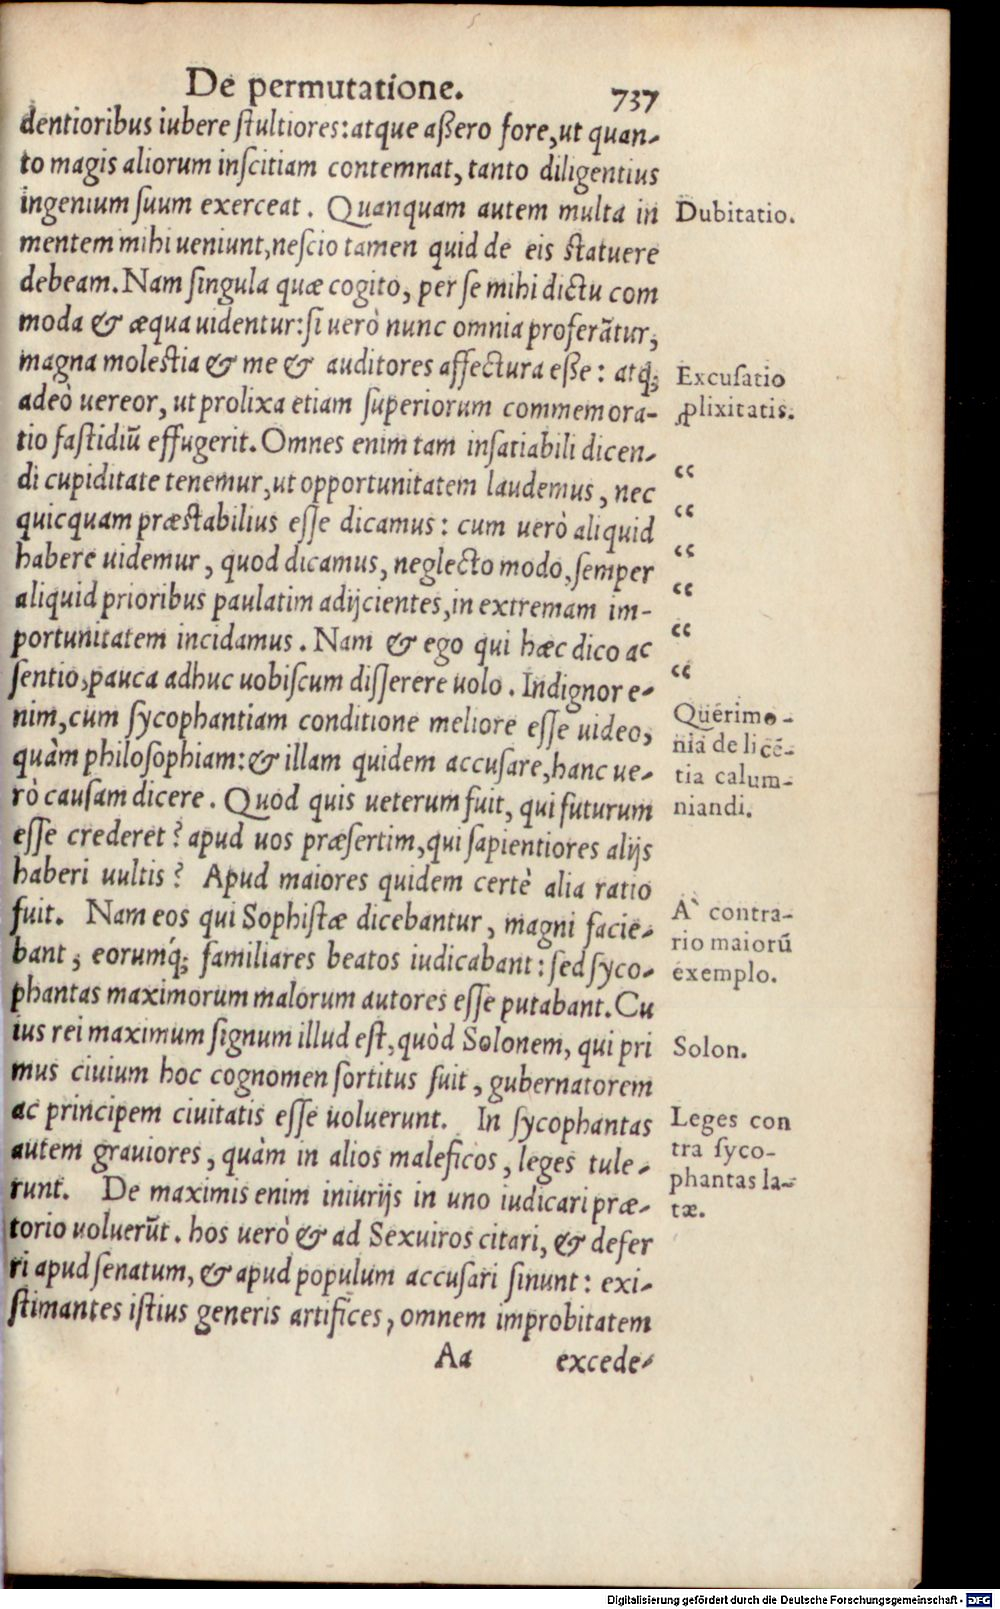 De permutatione. 737
dentioribus iubere ſtultiores: atque aßero fore, ut quan-
to magis aliorum inſcitiam contemnat, tanto diligentius
ingenium ſuum exerceat. Quanquam autem multa in
mentem mihi ueniunt, neſcio tamen quid de eis ſtatuere
debeam. Nam ſingula quæ cogito, per ſe mihi dictu com
moda & æqua uidentur: ſi uerò nunc omnia proferãtur,
magna moleſtia & me & auditores affectura eße: atq́;
adeò uereor, ut prolixa etiam ſuperiorum commemora-
tio faſtidiũ effugerit. Omnes enim tam inſatiabili dicen-
di cupiditate tenemur, ut opportunitatem laudemus, nec
quicquam præſtabilius eſſe dicamus: cum uerò aliquid
habere uidemur, quod dicamus, neglecto modo, ſemper
aliquid prioribus paulatim adijcientes, in extremam im-
portunitatem incidamus. Nam & ego qui hæc dico ac
ſentio, pauca adhuc uobiſcum diſſerere uolo. Indignor e-
nim, cum ſycophantiam conditione meliore eſſe uideo,
quàm philoſophiam: & illam quidem accuſare, hanc ue-
rò cauſam dicere. Quod quis ueterum fuit, qui futurum
eſſe crederet? apud uos præſertim, qui ſapientiores alijs
haberi uultis? Apud maiores quidem certè alia ratio
fuit. Nam eos qui Sophiſtæ dicebantur, magni facie-
bant, eorumq́; familiares beatos iudicabant: ſed ſyco-
phantas maximorum malorum autores eſſe putabant. Cu
ius rei maximum ſignum illud eſt, quòd Solonem, qui pri
mus ciuium hoc cognomen ſortitus fuit, gubernatorem
ac principem ciuitatis eſſe uoluerunt. In ſycophantas
autem grauiores, quàm in alios maleficos, leges tule-
runt. De maximis enim iniurijs in uno iudicari præ-
torio uoluerũt. hos uerò & ad Sexuiros citari, & defer
ri apud ſenatum, & apud populum accuſari ſinunt: exi-
ſtimantes iſtius generis artifices, omnem improbitatem
Aa excede-
Dubitatio.
Excuſatio
ꝓlixitatis.
“
“
“
“
“
“
Querimo-
nia de licẽ-
tia calum-
niandi.
À contra-
rio maiorũ
exemplo.
Solon.
Leges con
tra ſyco-
phantas la-
tæ.
Digitalisierung gefördert durch die Deutsche Forschungsgemeinschaft - DFG